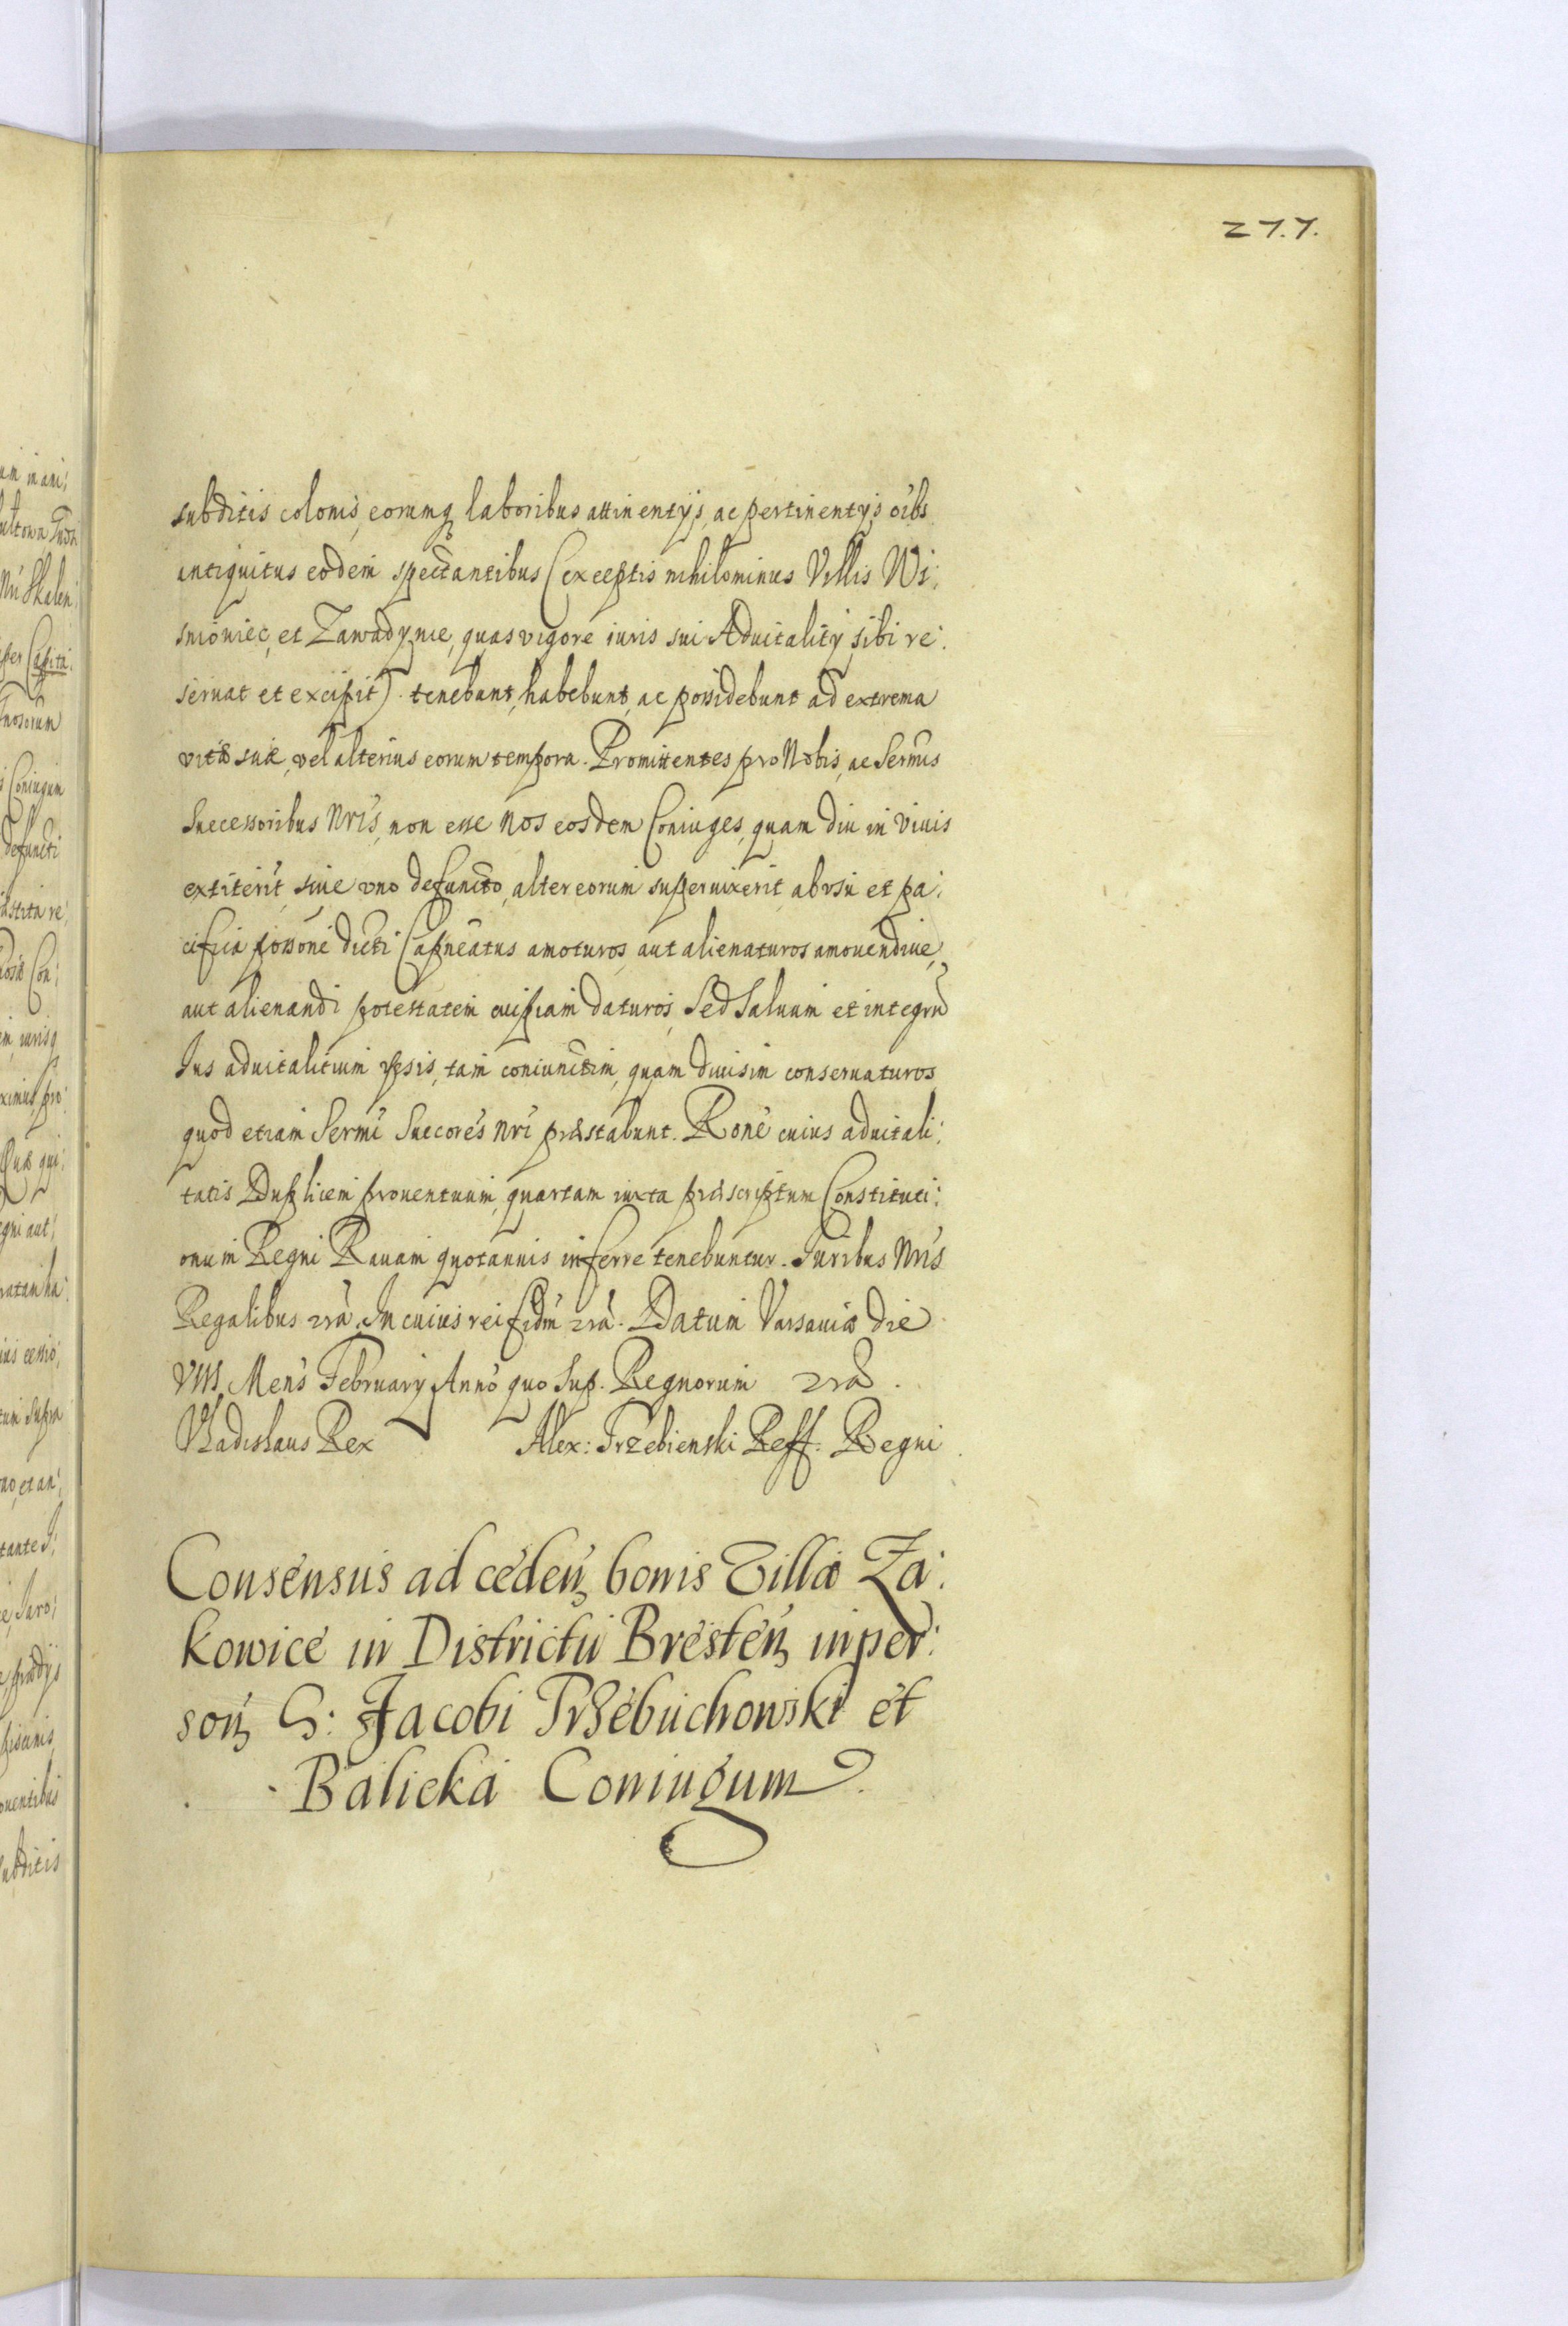 277.
subditis colonis, eorumq laboribus attinentijs, ac pertinentijs oibs
antiquitus eodem spectantibus (exceptis nihilominus Villis Wi:
snioniec, et Zawadynie, quas vigore iuris sui Aduitalitij sibi re:
seruat et excipit) tenebunt, habebunt, ac possidebunt ad extrema
vitæ suæ, vel alterius eorum tempora. Promittentes pro Nobis, ac Sermis
Successoribus Nris, non esse nos eosdem Coniuges, quam diu in viuis
extiterit, siue vno defuncto, alter eorum superuixerit, ab vsu et pa:
cifica possone dicti Capneatus amoturos, aut alienaturos amouendiue,
aut alienandi potestatem cuipiam daturos, Sed Saluum et integru
Jus aduitalitium ipsis, tam coniunctim, quam diuisim conseruaturos
quod etiam Sermi Succores nri præstabunt. Rone cuius aduitali:
tatis Duplicem prouentuum, quartam iuxta præscriptum Constituti:
onum Regni Rauam quotannis inferre tenebuntur. Juribus Nris
Regalibus zra. In cuius rei fidm zra. Datum Varsauiæ die
VIII Mens February Anno quo Sup. Regnorum zra.
Vladislaus Rex Alex: Trzebienski Reff. Regni
Consensus ad ceden bonis Villæ Za:
kowice in Districtu Bresten in per:
son G: Jacobi Przebuchowski et
Balicka Coniugum
um in ani:
Coniugum
defuncti
subditis